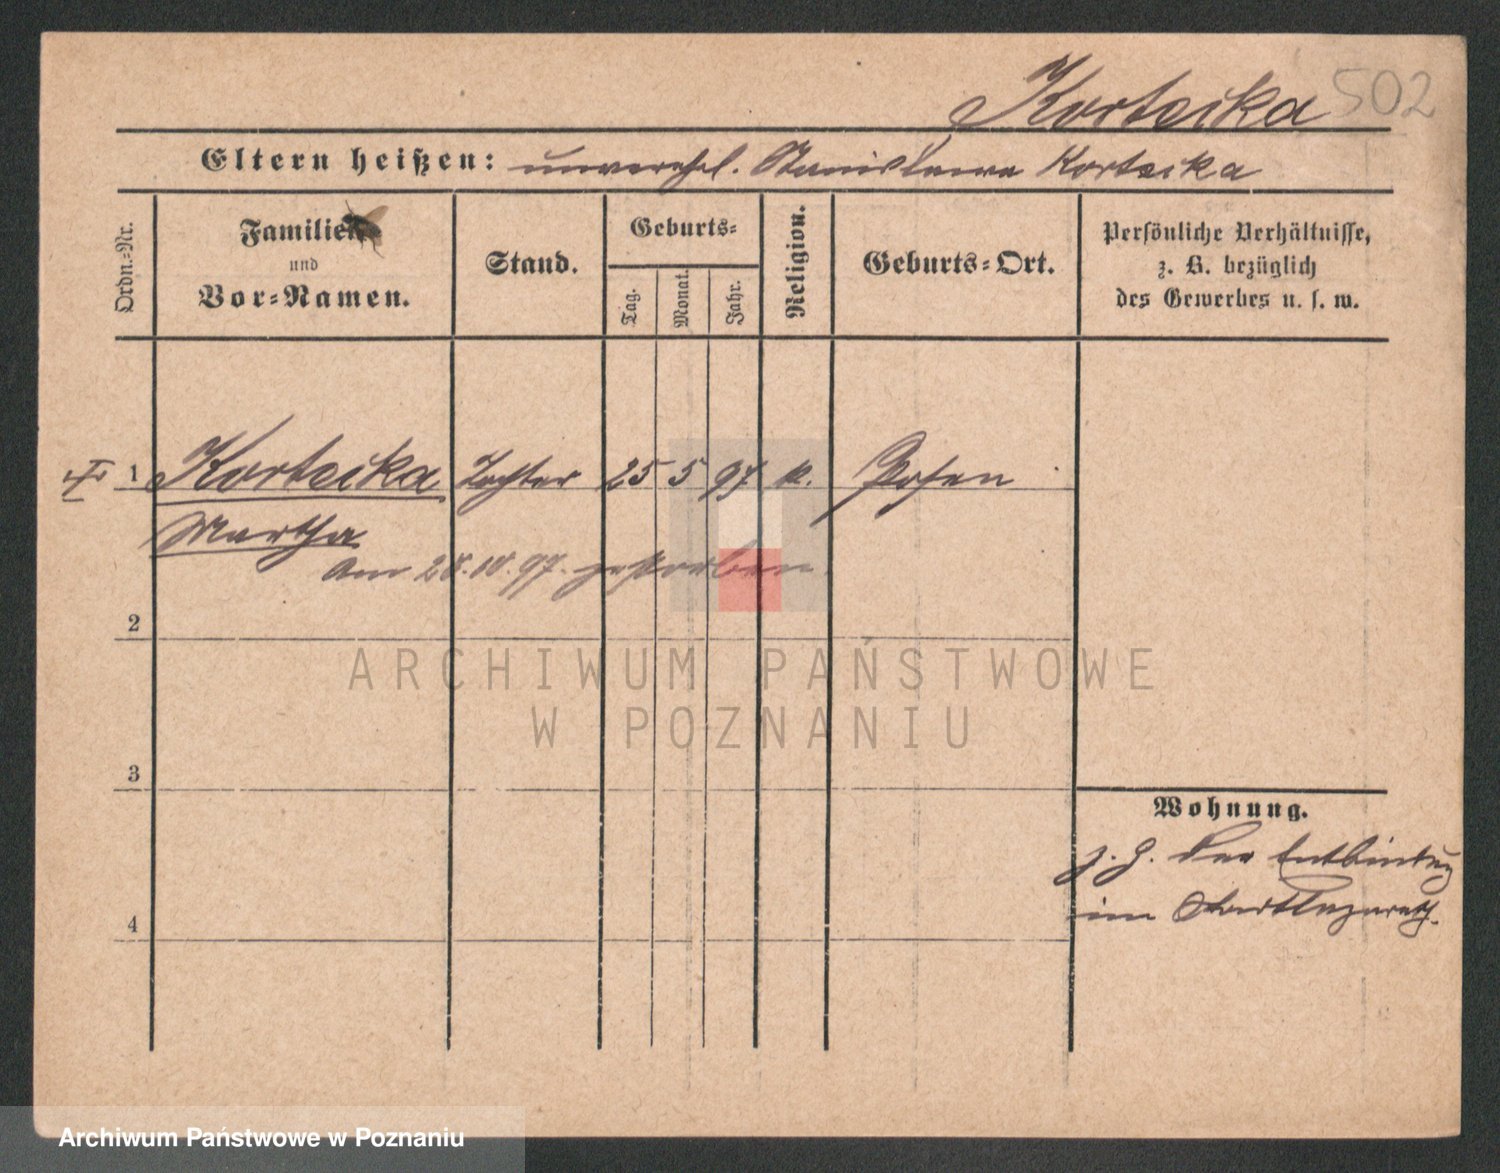 Kortecka 502
Eltern heißen: unverehel. Stanislawa Kortecka
Ordn.=Nr.
Familien
und
Vor=Namen.
Stand.
Geburts=
Tag.
Monat.
Jahr.
Religion.
Geburts=Ort.
Persönliche Verhältnisse,
z. B. bezüglich
des Gewerbes u. s. w.
1 Kortecka Tochter 25 5 97 k. Posen
Martha
Am 28.10.97. gestorben.
2
ARCHIWUM PAŃSTWOWE
W POZNANIU
3
Wohnung.
z. Z. der Entbindung
im Stadtlazareth.
4
Archiwum Państwowe w Poznaniu